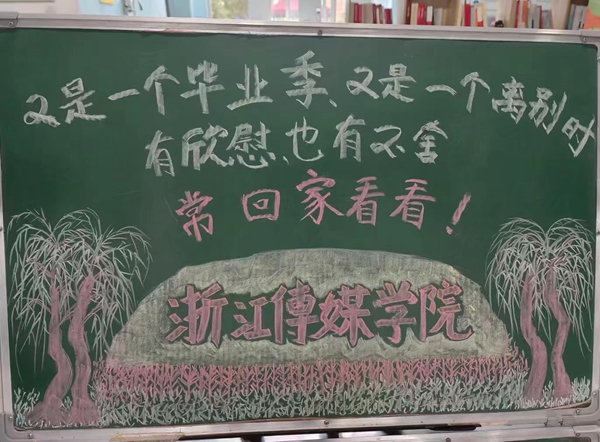 又是一个毕业季、又是一个离别时
有欣慰、也有不舍
常回家看看！
浙江傳媒学院